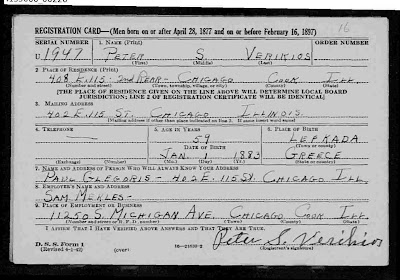 16
REGISTRATION CARD—(Men born on or after April 28, 1877 and on or before February 16, 1897)
SERIAL NUMBER 1. NAME (Print)
U 1947 PETER S. VERIKIOS
(First) (Middle) (Last)
2. PLACE OF RESIDENCE (Print)
408 E. 115 - 2nd REAR - CHICAGO COOK ILL.
(Number and street) (Town, township, village, or city) (County) (State)
[THE PLACE OF RESIDENCE GIVEN ON THE LINE ABOVE WILL DETERMINE LOCAL BOARD
JURISDICTION; LINE 2 OF REGISTRATION CERTIFICATE WILL BE IDENTICAL]
3. MAILING ADDRESS
402 E. 115 ST. CHICAGO ILLINOIS.
[Mailing address if other than place indicated on line 2. If same insert word same]
4. TELEPHONE 5. AGE IN YEARS 6. PLACE OF BIRTH
59 LEFKADA
DATE OF BIRTH (Town or county)
JAN. 1 1883 GREECE
(Exchange) (Number) (Mo.) (Day) (Yr.) (State or country)
7. NAME AND ADDRESS OF PERSON WHO WILL ALWAYS KNOW YOUR ADDRESS
PAUL GLEGORIS - 402 E. 115 St. CHICAGO ILL
8. EMPLOYER'S NAME AND ADDRESS
SAM MERLES -
9. PLACE OF EMPLOYMENT OR BUSINESS
11250 S. MICHIGAN AVE. CHICAGO COOK ILL.
(Number and street or R. F. D. number) (Town) (County) (State)
I AFFIRM THAT I HAVE VERIFIED ABOVE ANSWERS AND THAT THEY ARE TRUE.
D. S. S. Form 1
(Revised 4-1-42) (over) 16—21630-2 Peter S. Verikios
(Registrant's signature)